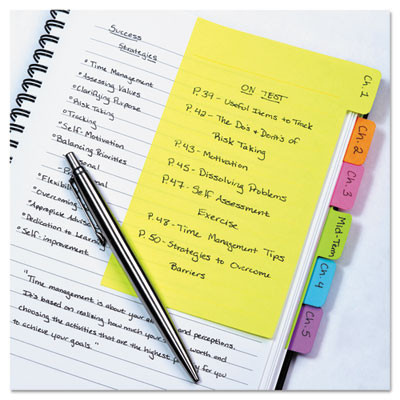 Success
Strategies
Time Management
Assessing Values
Clarifying Purpose
Risk Taking
Tracking
Self-Motivation
Balancing Priorities
Personal
Flexibility
Overcoming
Appropriate
Dedication to
Self-improvement
"Time management is about your and perceptions.
It's based on realizing how much your worth and
choosing the activities that are the highest for you
to achieve your goals."
ON TEST
P.39 - Useful Items to Track
P.42 - The Do's & Dont's of
Risk Taking
P.43 - Motivation
P.45 - Dissolving Problems
P.47 - Self Assessment
Exercise
P.48 - Time Management Tips
P.50 - Strategies to Overcome
Barriers
Ch. 1
Ch. 2
Ch. 3
Mid-Term
Ch. 4
Ch. 5